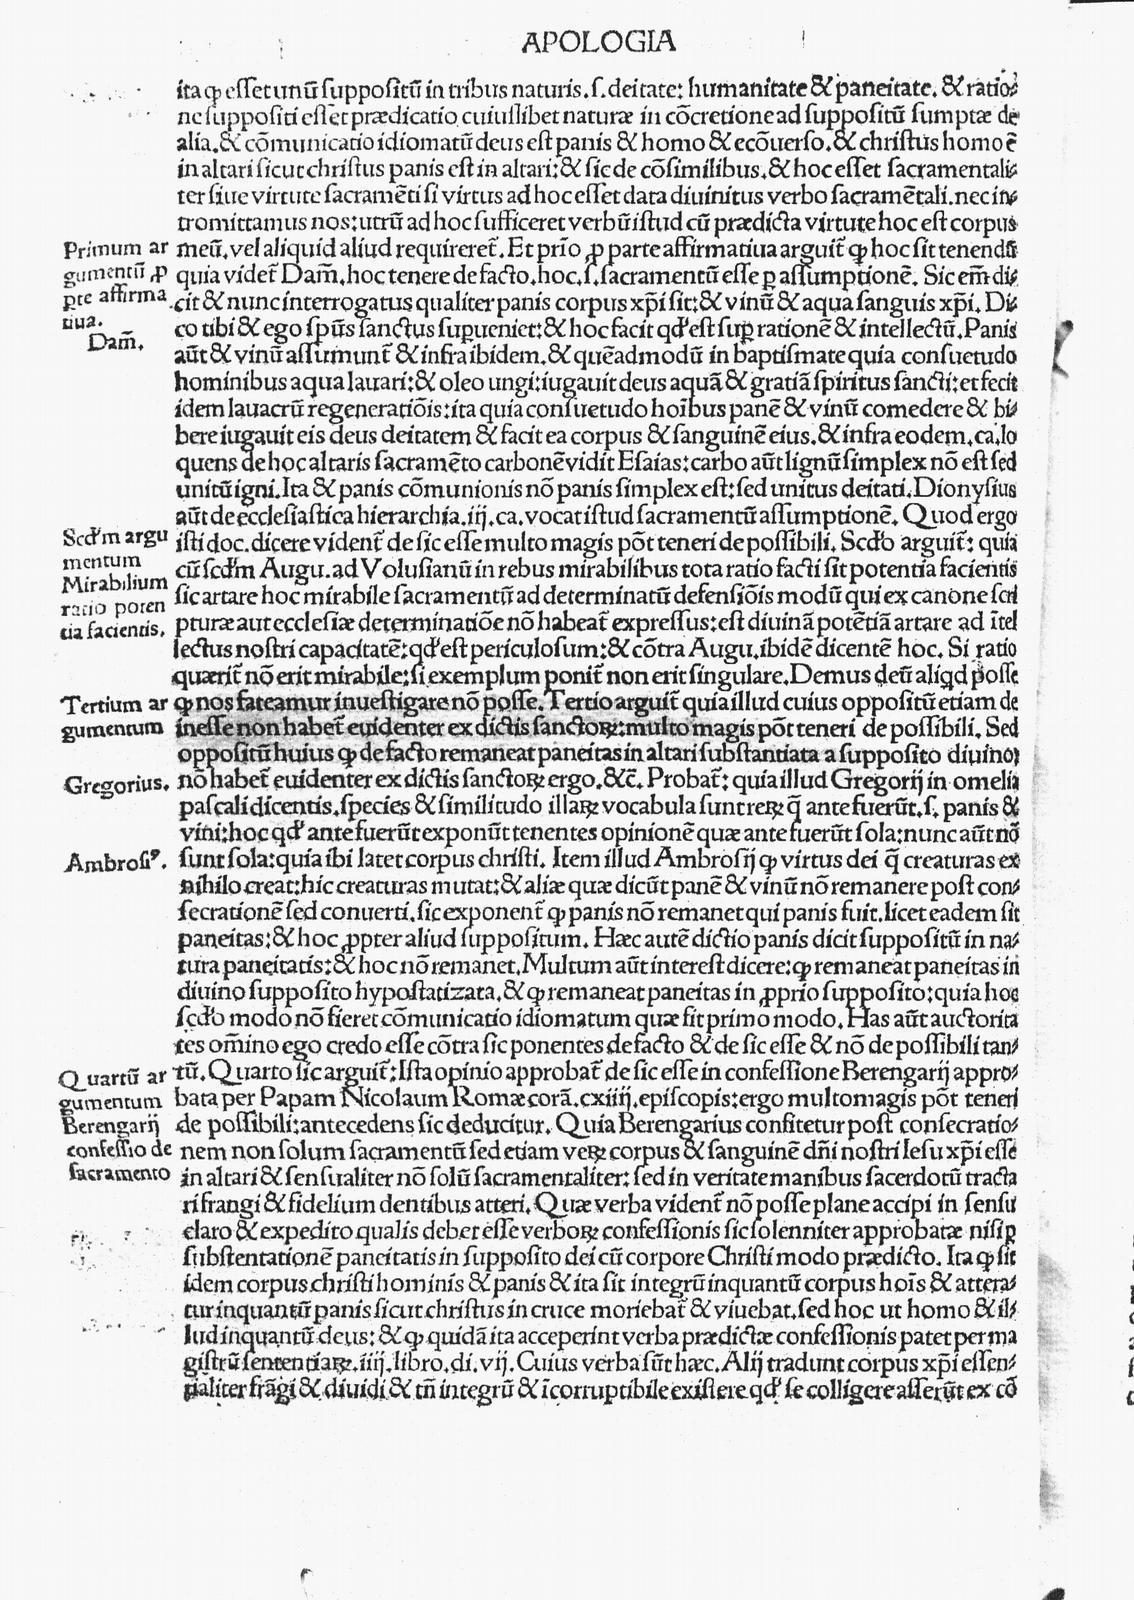 APOLOGIA
ita ꝙ eſſet unū ſuppoſitū in tribus naturis.ſ.deitate: humanitate & paneitate. & ratio⸗
ne ſuppoſiti eſſet prædicatio cuiuſlibet naturæ in cōcretione ad ſuppoſitū ſumptæ de
alia.& cōmunicatio idiomatū deus eſt panis & homo & ecōuerſo.& chriſtus homo ē
in altari ſicut chriſtus panis eſt in altari:& ſic de cōſimilibus.& hoc eſſet ſacramentali⸗
ter ſiue virtute ſacramēti ſi virtus ad hoc eſſet data diuinitus verbo ſacramētali.nec in⸗
tromittamus nos:utrū ad hoc ſufficeret verbū iſtud cū prædicta virtute hoc eſt corpus
Primum ar
gumentū ꝓ
pte affirma
tiua.
Dam̄.
meū.vel aliquid aliud requireret̄. Et prīo ꝓ parte affirmatiua arguit̄ ꝙ hoc ſit tenendū
quia videt̄ Dam̄.hoc tenere de facto.hoc.ſ.ſacramentū eſſe ꝑ aſſumptionē. Sic em̄ di⸗
cit & nunc interrogatus qualiter panis corpus xp̄i ſit:& vinū & aqua ſanguis xp̄i. Di⸗
co tibi & ego ſpūs ſanctus ſuꝑueniet:& hoc facit qđ eſt ſuꝑ rationē & intellectū. Panis
aūt & vinū aſſumunt̄ & infra ibidem.& quēadmodū in baptiſmate quia conſuetudo
hominibus aqua lauari:& oleo ungi:iugauit deus aquā & gratiā ſpiritus ſancti:et fecit
idem lauacrū regeneratiōis:ita quia conſuetudo hoībus panē & vinū comedere & bi⸗
bere iugauit eis deus deitatem & facit ea corpus & ſanguinē eius.& infra eodem.ca.lo
quens de hoc altaris ſacramēto carbonē vidit Eſaias:carbo aūt lignū ſimplex nō eſt ſed
unitū igni.Ita & panis cōmunionis nō panis ſimplex eſt:ſed unitus deitati.Dionyſius
aūt de eccleſiaſtica hierarchia.iij.ca.vocat iſtud ſacramentū aſſumptionē. Quod ergo
Scđm argu
mentum
Mirabilium
ratio poten
tia facientis.
iſti doc.dicere vident̄ de ſic eſſe multo magis pōt teneri de poſſibili. Scđo arguit̄: quia
cū ſcđm Augu.ad Voluſianū in rebus mirabilibus tota ratio facti ſit potentia facientis
ſic artare hoc mirabile ſacramentū ad determinatū defenſiōis modū qui ex canone ſcri
pturæ aut eccleſiæ determinatiōe nō habeat̄ expreſſus:eſt diuinā potētiā artare ad ītel
lectus noſtri capacitatē:qđ eſt periculoſum:& cōtra Augu.ibidē dicentē hoc. Si ratio
quærit̄ nō erit mirabile:ſi exemplum ponit̄ non erit ſingulare.Demus deū aliqd poſſe
Tertium ar
gumentum
ꝙ nos fateamur inueſtigare nō poſſe. Tertio arguit̄ quia illud cuius oppoſitū etiam de
ineſſe non habet̄ euidenter ex dictis ſanctoꝝ:multo magis pōt teneri de poſſibili. Sed
oppoſitū huius ꝙ de facto remaneat paneitas in altari ſubſtantiata a ſuppoſito diuino:
Gregorius.
nō habet̄ euidenter ex dictis ſanctoꝝ ergo.&c̄. Probat̄: quia illud Gregorij in omelia
paſcali dicentis.ſpecies & ſimilitudo illaꝝ vocabula ſunt reꝝ q̄ ante fuerūt.ſ. panis &
vini:hoc qđ ante fuerūt exponūt tenentes opinionē quæ ante fuerūt ſola:nunc aūt nō
Ambroſiꝰ.
ſunt ſola:quia ibi latet corpus chriſti. Item illud Ambroſij ꝙ virtus dei q̄ creaturas ex
nihilo creat:hic creaturas mutat:& aliæ quæ dicūt panē & vinū nō remanere poſt con⸗
ſecrationē ſed conuerti.ſic exponent̄ ꝙ panis nō remanet qui panis fuit.licet eadem ſit
paneitas:& hoc ꝓpter aliud ſuppoſitum. Hæc autē dictio panis dicit ſuppoſitū in na⸗
tura paneitatis:& hoc nō remanet.Multum aūt intereſt dicere:ꝙ remaneat paneitas in
diuino ſuppoſito hypoſtatizata.& ꝙ remaneat paneitas in ꝓprio ſuppoſito:quia hoc
ſcđo modo nō fieret cōmunicatio idiomatum quæ fit primo modo. Has aūt auctorita
tes om̄ino ego credo eſſe cōtra ſic ponentes de facto & de ſic eſſe & nō de poſſibili tan⸗
Quartū ar
gumentum
Berengarij
confeſſio de
ſacramento
tū. Quarto ſic arguit̄:Iſta opinio approbat̄ de ſic eſſe in confeſſione Berengarij appro⸗
bata per Papam Nicolaum Romæ corā.cxiiij.epiſcopis:ergo multomagis pōt teneri
de poſſibili:antecedens ſic deducitur. Quia Berengarius confitetur poſt conſecratio⸗
nem non ſolum ſacramentū ſed etiam veꝝ corpus & ſanguinē dn̄i noſtri Ieſu xp̄i eſſe
in altari & ſenſualiter nō ſolū ſacramentaliter: ſed in veritate manibus ſacerdotū tracta
ri frangi & fidelium dentibus atteri. Quæ verba vident̄ nō poſſe plane accipi in ſenſu
claro & expedito qualis debet eſſe verboꝝ confeſſionis ſic ſolenniter approbatæ niſi ꝑ
ſubſtentationē paneitatis in ſuppoſito dei cū corpore Chriſti modo prædicto. Ita ꝙ ſit
idem corpus chriſti hominis & panis & ita ſit integrū inquantū corpus hoīs & attera⸗
tur inquantū panis ſicut chriſtus in cruce moriebat̄ & viuebat.ſed hoc ut homo & il⸗
lud inquantū deus: & ꝙ quidā ita acceperint verba prædictæ confeſſionis patet per ma
giſtrū ſententiaꝝ.iiij.libro.di.vij. Cuius verba ſūt hæc. Alij tradunt corpus xp̄i eſſen⸗
tialiter frāgi & diuidi & tn̄ integrū & īcorruptibile exiſtere qđ ſe colligere aſſerūt ex cō